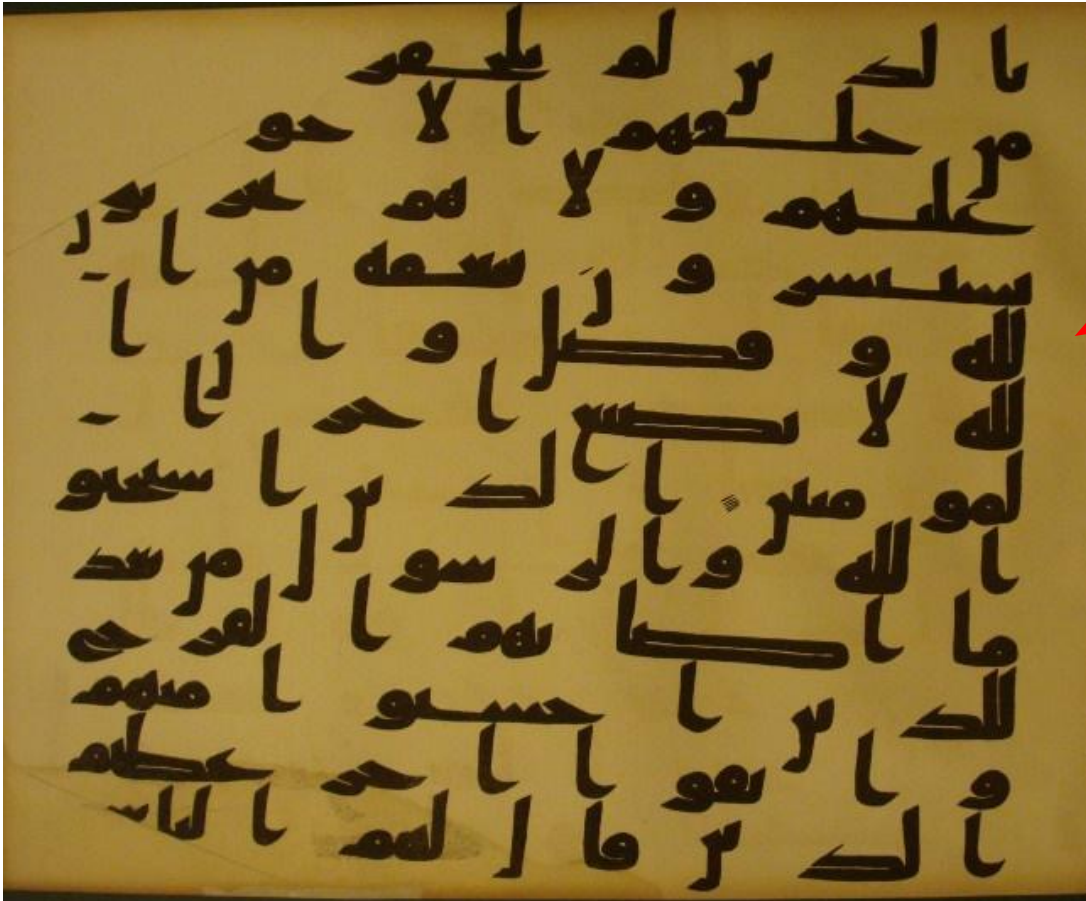 بالذين لم يلحقو
من خلفهم الا خوف
عليهم ولا هم يحزنون
يستبشرون بنعمة من ا
لله وفضل وان ا
لله لا يضيع اجر ا
لمومنين الذين استجبو
ا لله والرسول من بعد
ما اصابهم القرح
للذين احسنوا منهم
واتقوا اجر عظيم
الذين قال لهم الناس